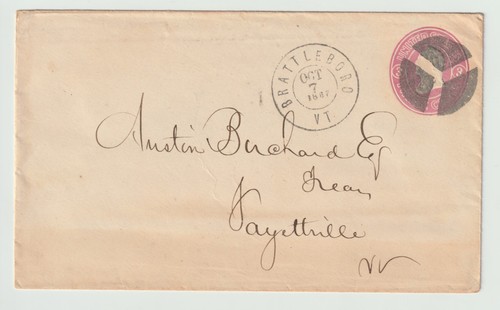 BRATTLEBORO
OCT
7
VT.
Austin Birchard Esq
Treas
Fayettville
Vt